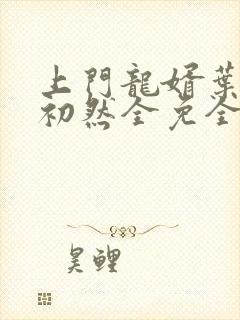 上門龍婿葉
初然全免全
昊鯉